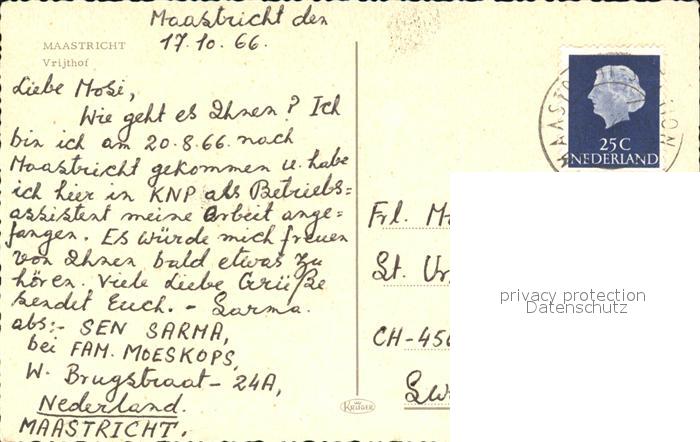 Maastricht den
17.10.66.
MAASTRICHT
Vrijthof
Liebe Mosi,
Wie geht es Ihnen? Ich
bin ich am 20.8.66. nach
Maastricht gekommen u. habe
ich hier in KNP als Betriebs=
assistent meine Arbeit ange=
fangen. Es würde mich freuen
von Ihnen bald etwas zu
hören. Viele Liebe Grüße
sendet Euch. - Sarma.
abs:- SEN SARMA,
bei FAM. MOESKOPS,
W. Brugstraat - 24A,
Nederland.
MAASTRICHT.
25C
NEDERLAND
MAAST
ION
Frl. M
St. Ur
CH-45
privacy protection
Datenschutz
KRÜGER